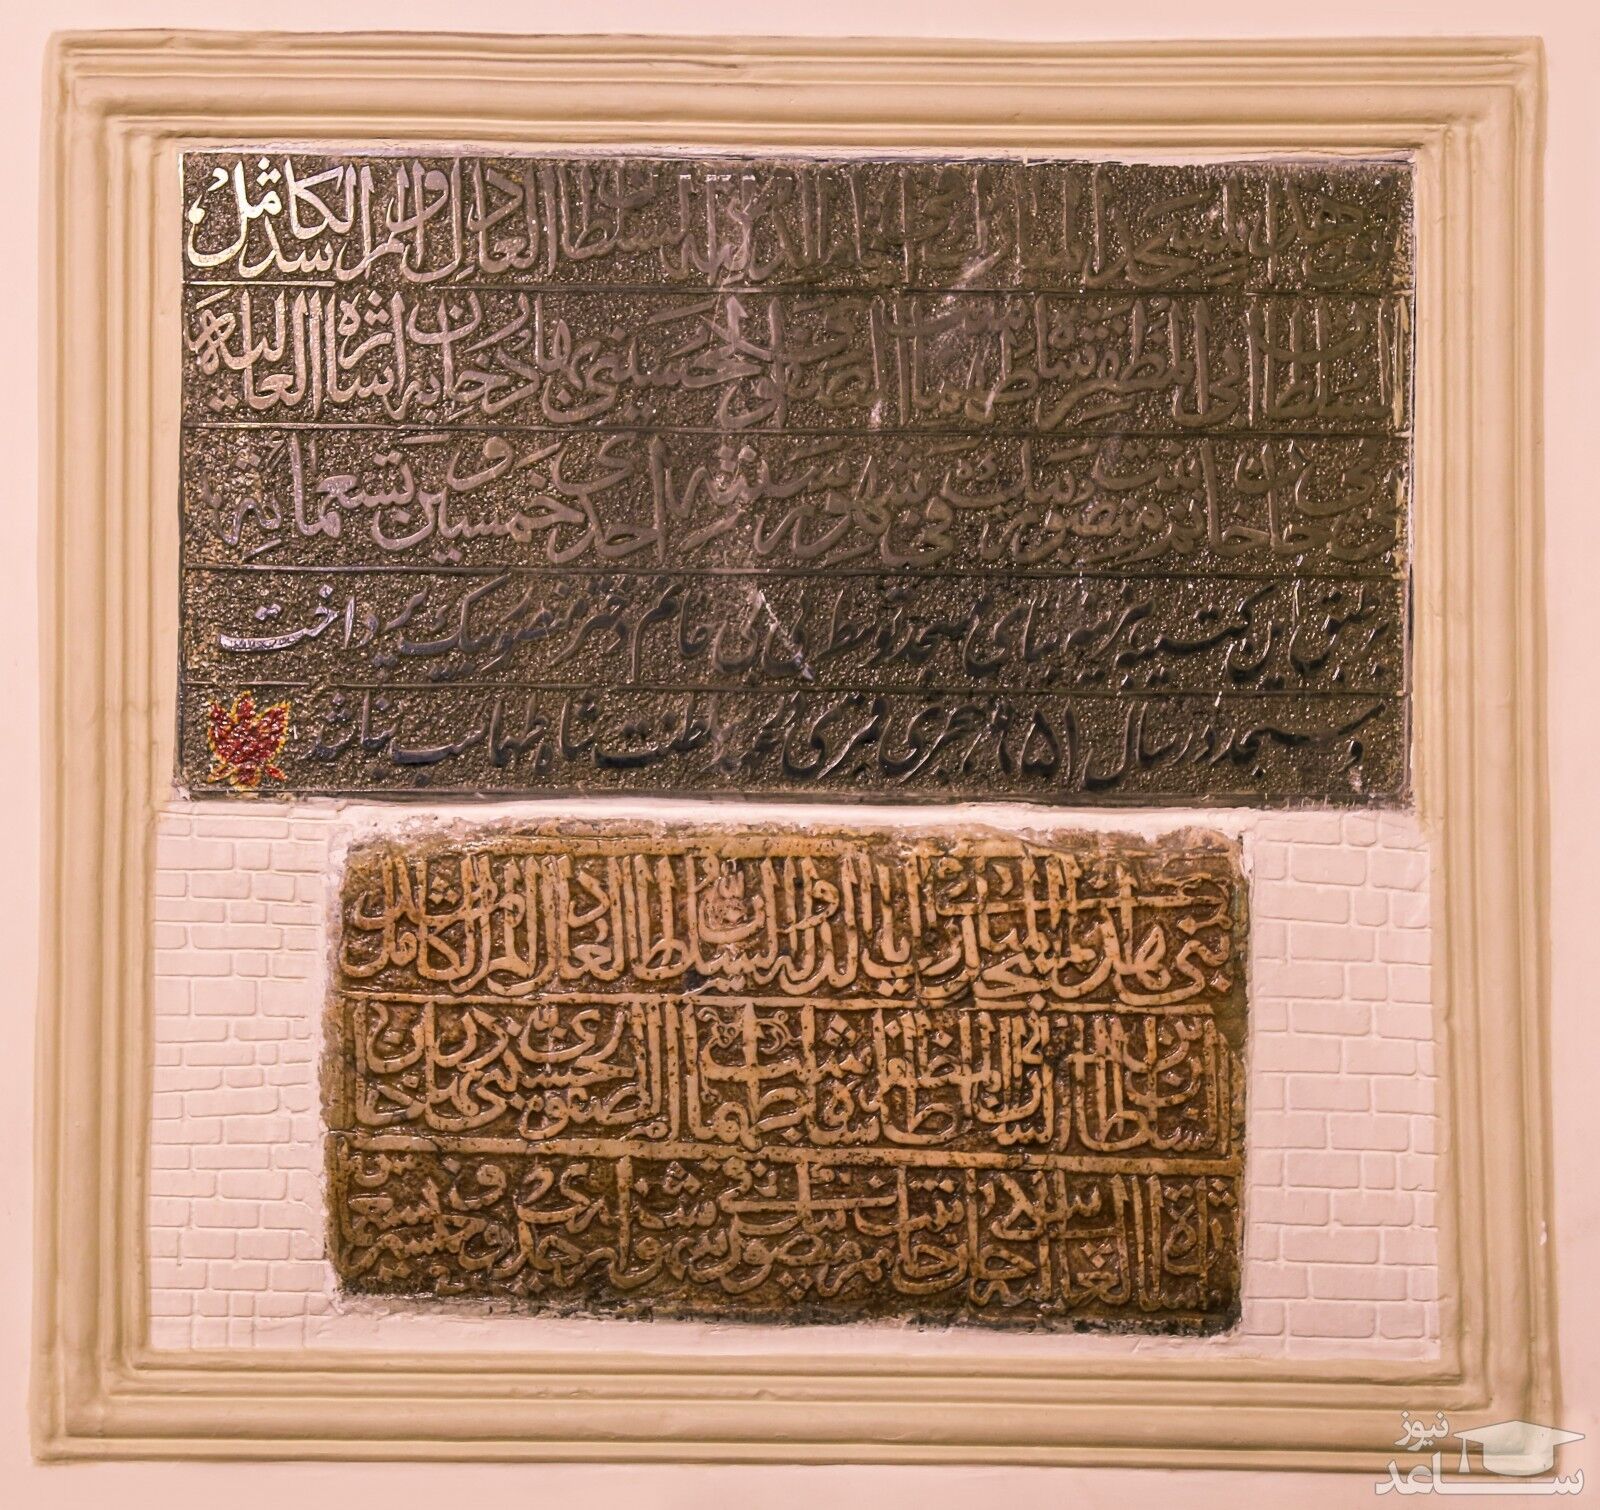 بنی هذا المسجد المبارک فی ایام الدولة السلطان العادل و المرشد الکامل
السلطان بن السلطان ابی المظفر شاه طهماسب الصفوی الحسینی بهادرخان بإشارة العالیه
بی بی حاجی خانم بنت منصور بیک فی شهور سنة احدی و خمسین و تسعمائة
بر طبق این کتیبه هزینه بنای مسجد توسط بی بی خانم دختر منصور بیک پرداخت
و مسجد در سال ۹۵۱ هجری قمری در عهد سلطنت شاه طهماسب بنا شد
بنی هذا المسجد المبارک ایام الدولة السلطان العادل المرشد الکامل
السلطان بن السلطان ابو المظفر شاه طهماسب الصفوی الحسینی بهادرخان
بإشارة العالیة حاجی خانم بنت منصور
نیوز
ساعد